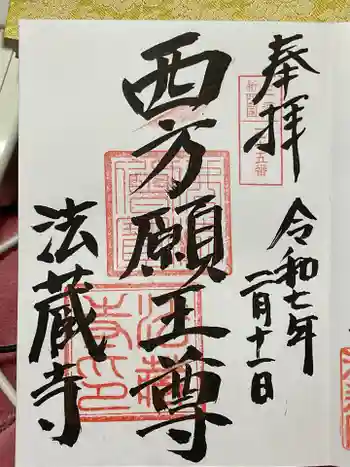 奉拝
令和七年
二月十一日
西方願王尊
法蔵寺
法蔵
寺印